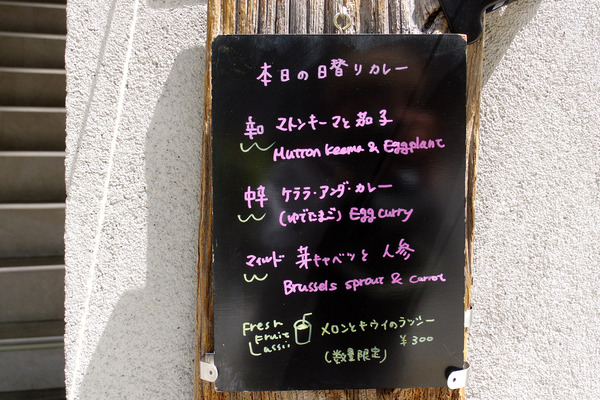 本日の日替りカレー
辛 マトンキーマと茄子
Mutton Keema & Eggplant
中辛 ケララ・アンダ・カレー
(ゆでたまご) Egg curry
マイルド 芽キャベツと人参
Brussels sprout & carrot
Fresh Fruit Lassi
メロンとキウイのラッシー
¥300
(数量限定)